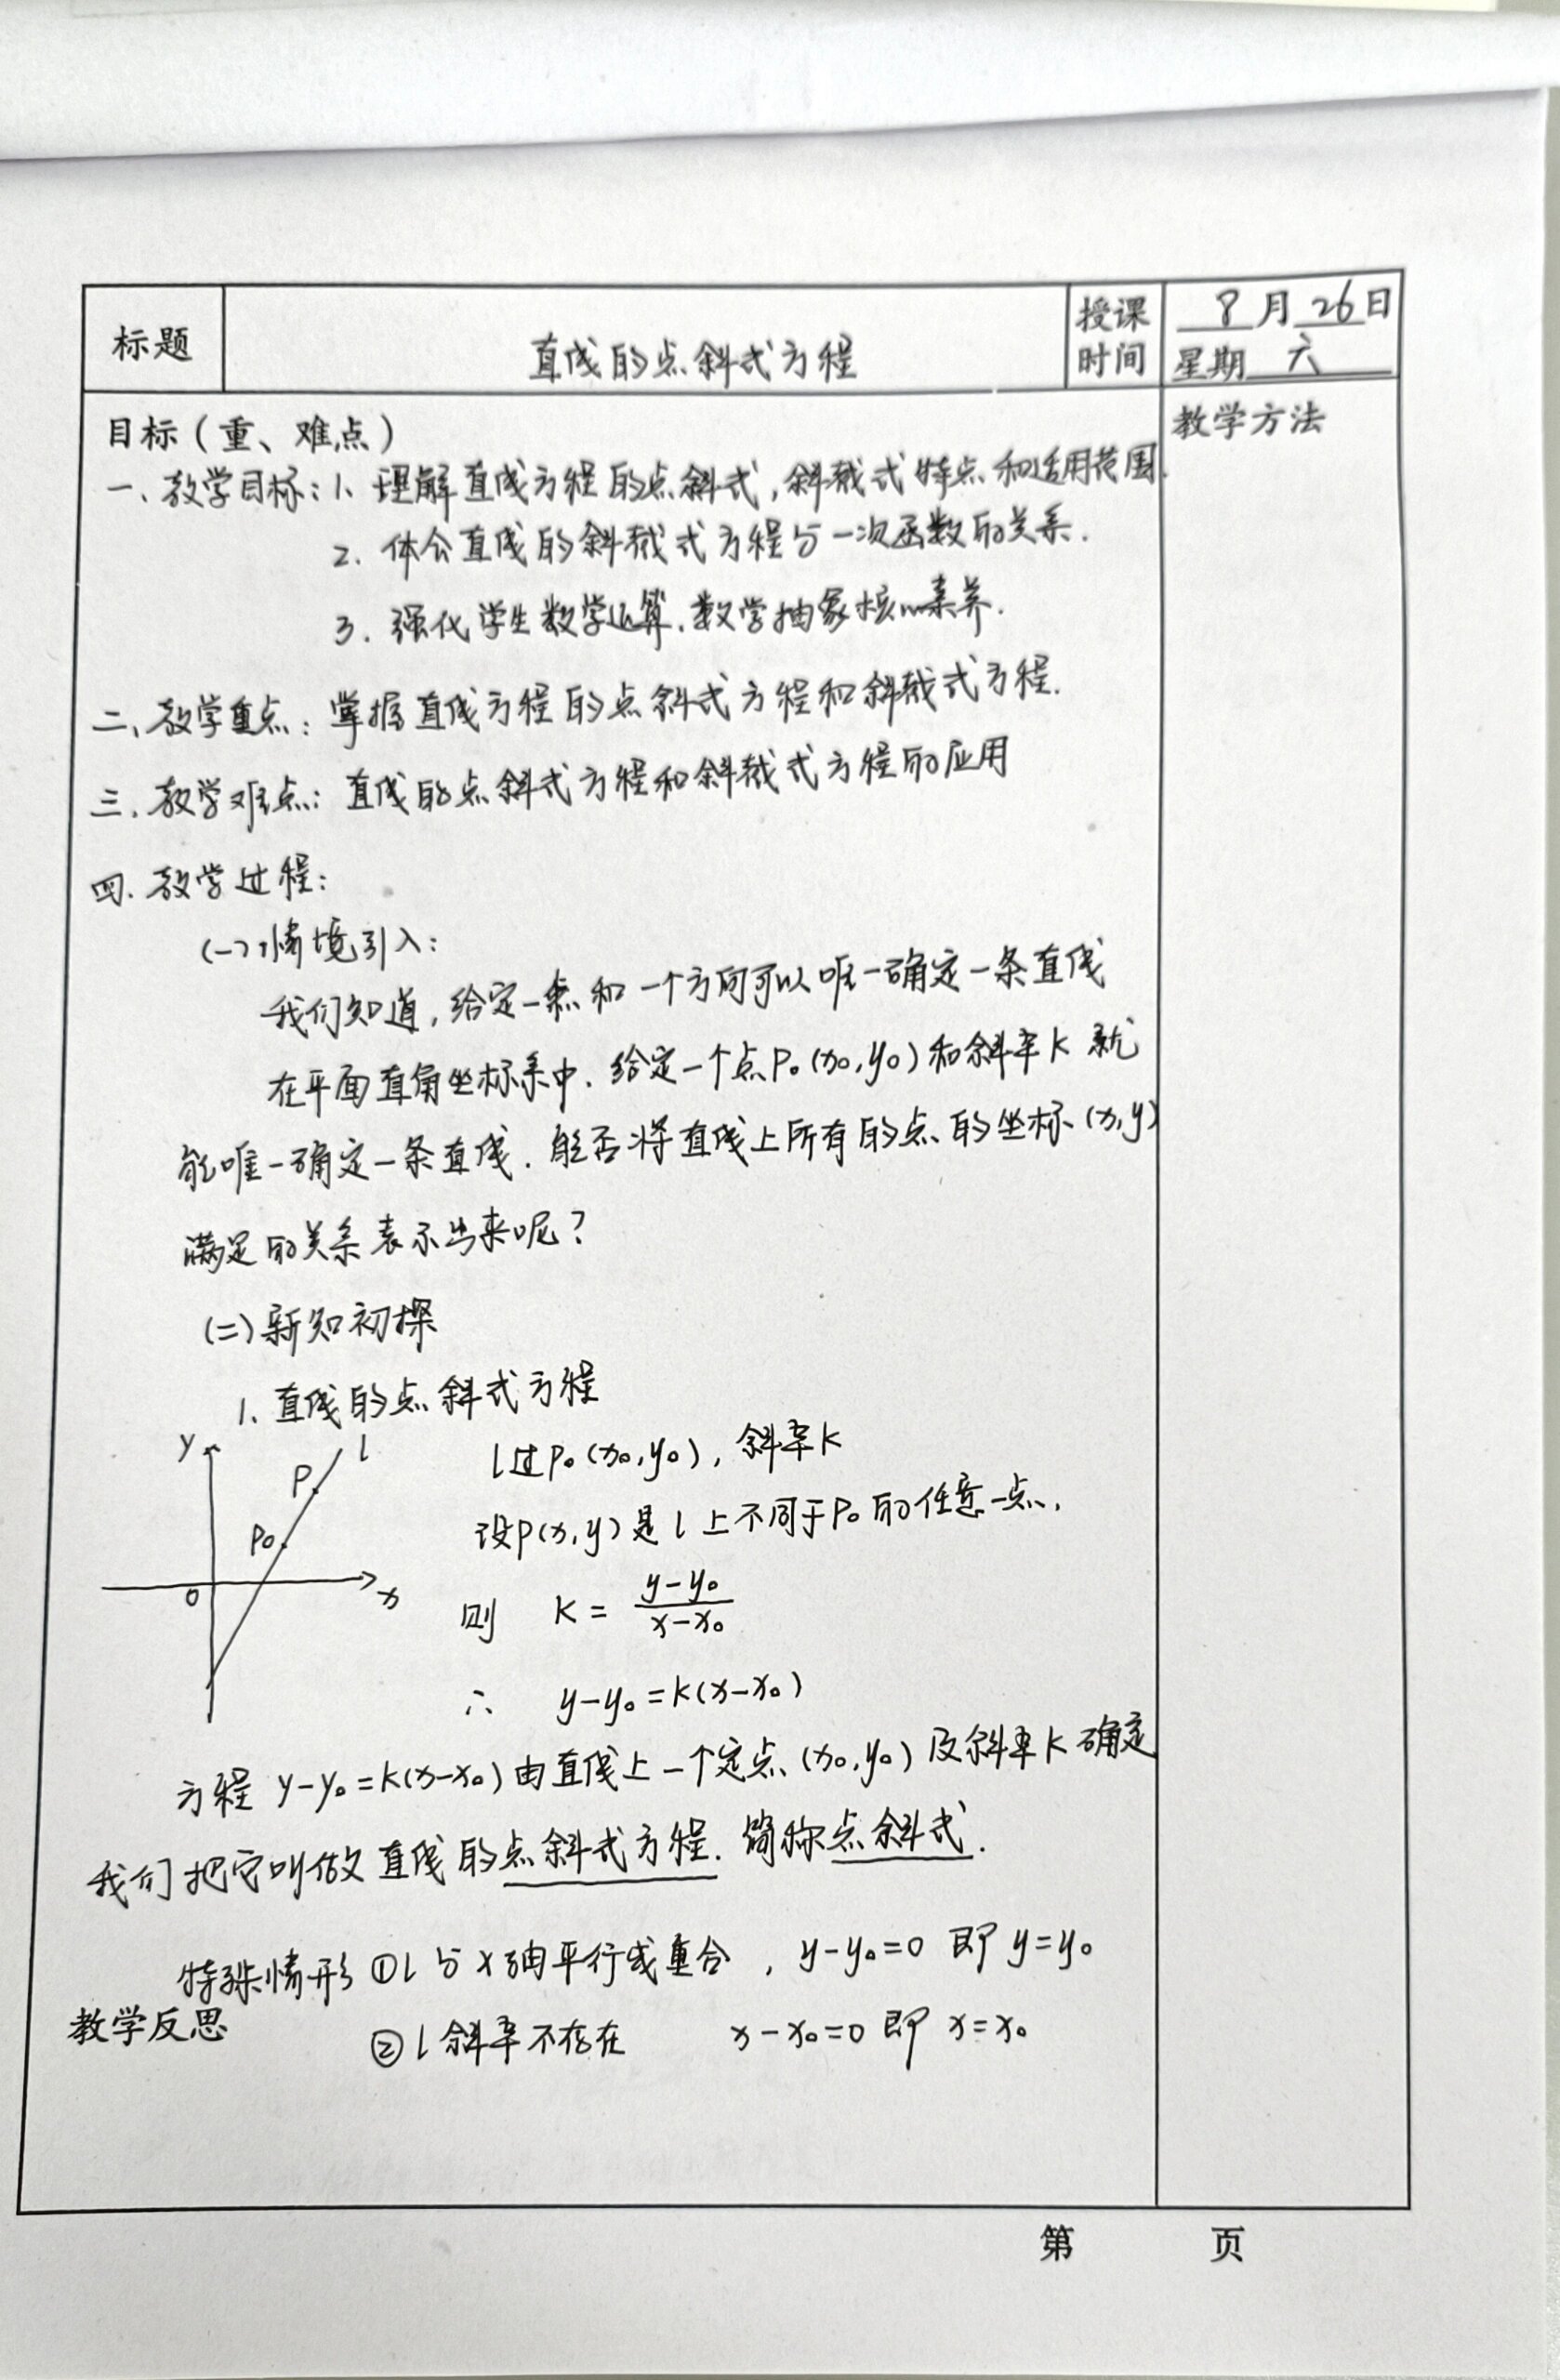 标题 直线的点斜式方程 授课时间 8月26日 星期六
目标(重、难点) 教学方法
一、教学目标:1、理解直线方程的点斜式,斜截式特点和适用范围.
2. 体会直线的斜截式方程与一次函数的关系.
3. 强化学生数学运算、数学抽象核心素养.
二、教学重点:掌握直线方程的点斜式方程和斜截式方程.
三、教学难点:直线的点斜式方程和斜截式方程的应用
四. 教学过程:
(一)情境引入:
我们知道,给定一点和一个方向可以唯一确定一条直线
在平面直角坐标系中. 给定一个点P₀(x₀,y₀)和斜率k就
能唯一确定一条直线. 能否将直线上所有的点的坐标(x,y)
满足的关系表示出来呢?
(二)新知初探
1、直线的点斜式方程
y l P P₀ O x
l过P₀(x₀,y₀),斜率k
设P(x,y)是l上不同于P₀的任意一点,
则 k = (y-y₀)/(x-x₀)
∴ y-y₀=k(x-x₀)
方程 y-y₀=k(x-x₀)由直线上一个定点(x₀,y₀)及斜率k确定
我们把它叫做直线的点斜式方程. 简称点斜式.
特殊情形 ①l与x轴平行或重合,y-y₀=0 即 y=y₀
教学反思
②l斜率不存在 x-x₀=0 即 x=x₀
第 页